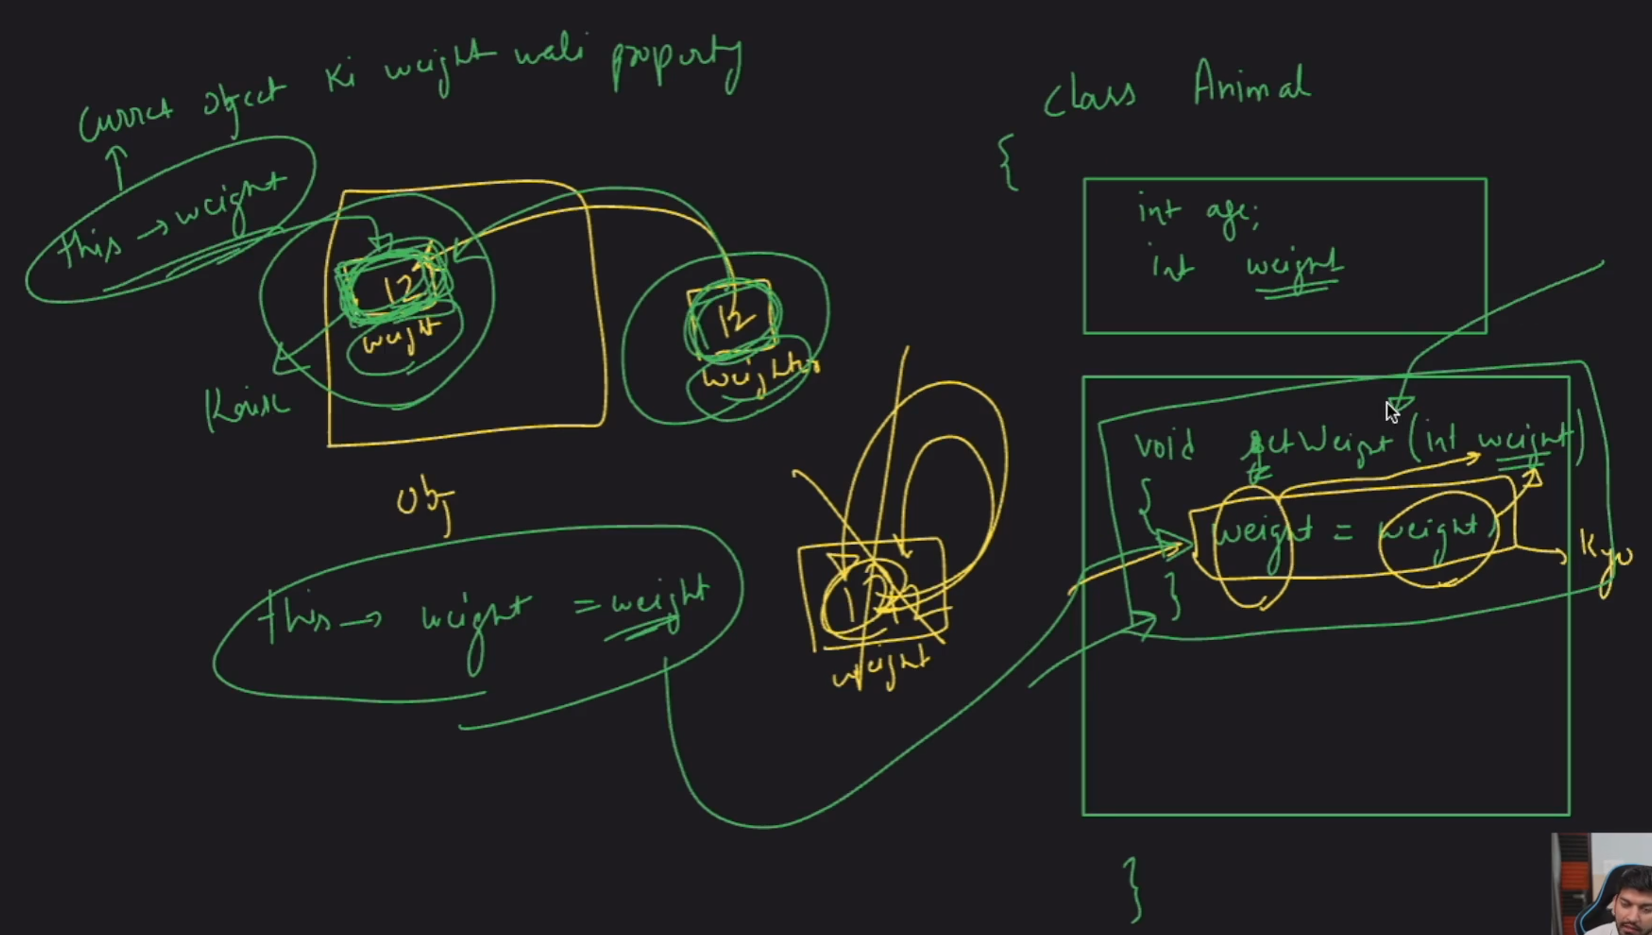 Curret object Ki weight wali property
this → weight
12
weight
Obj
12
this → weight = weight
weight
class Animal
{
int age;
int weight
void setWeight (int weight)
{
weight = weight;
}
Kyu
}